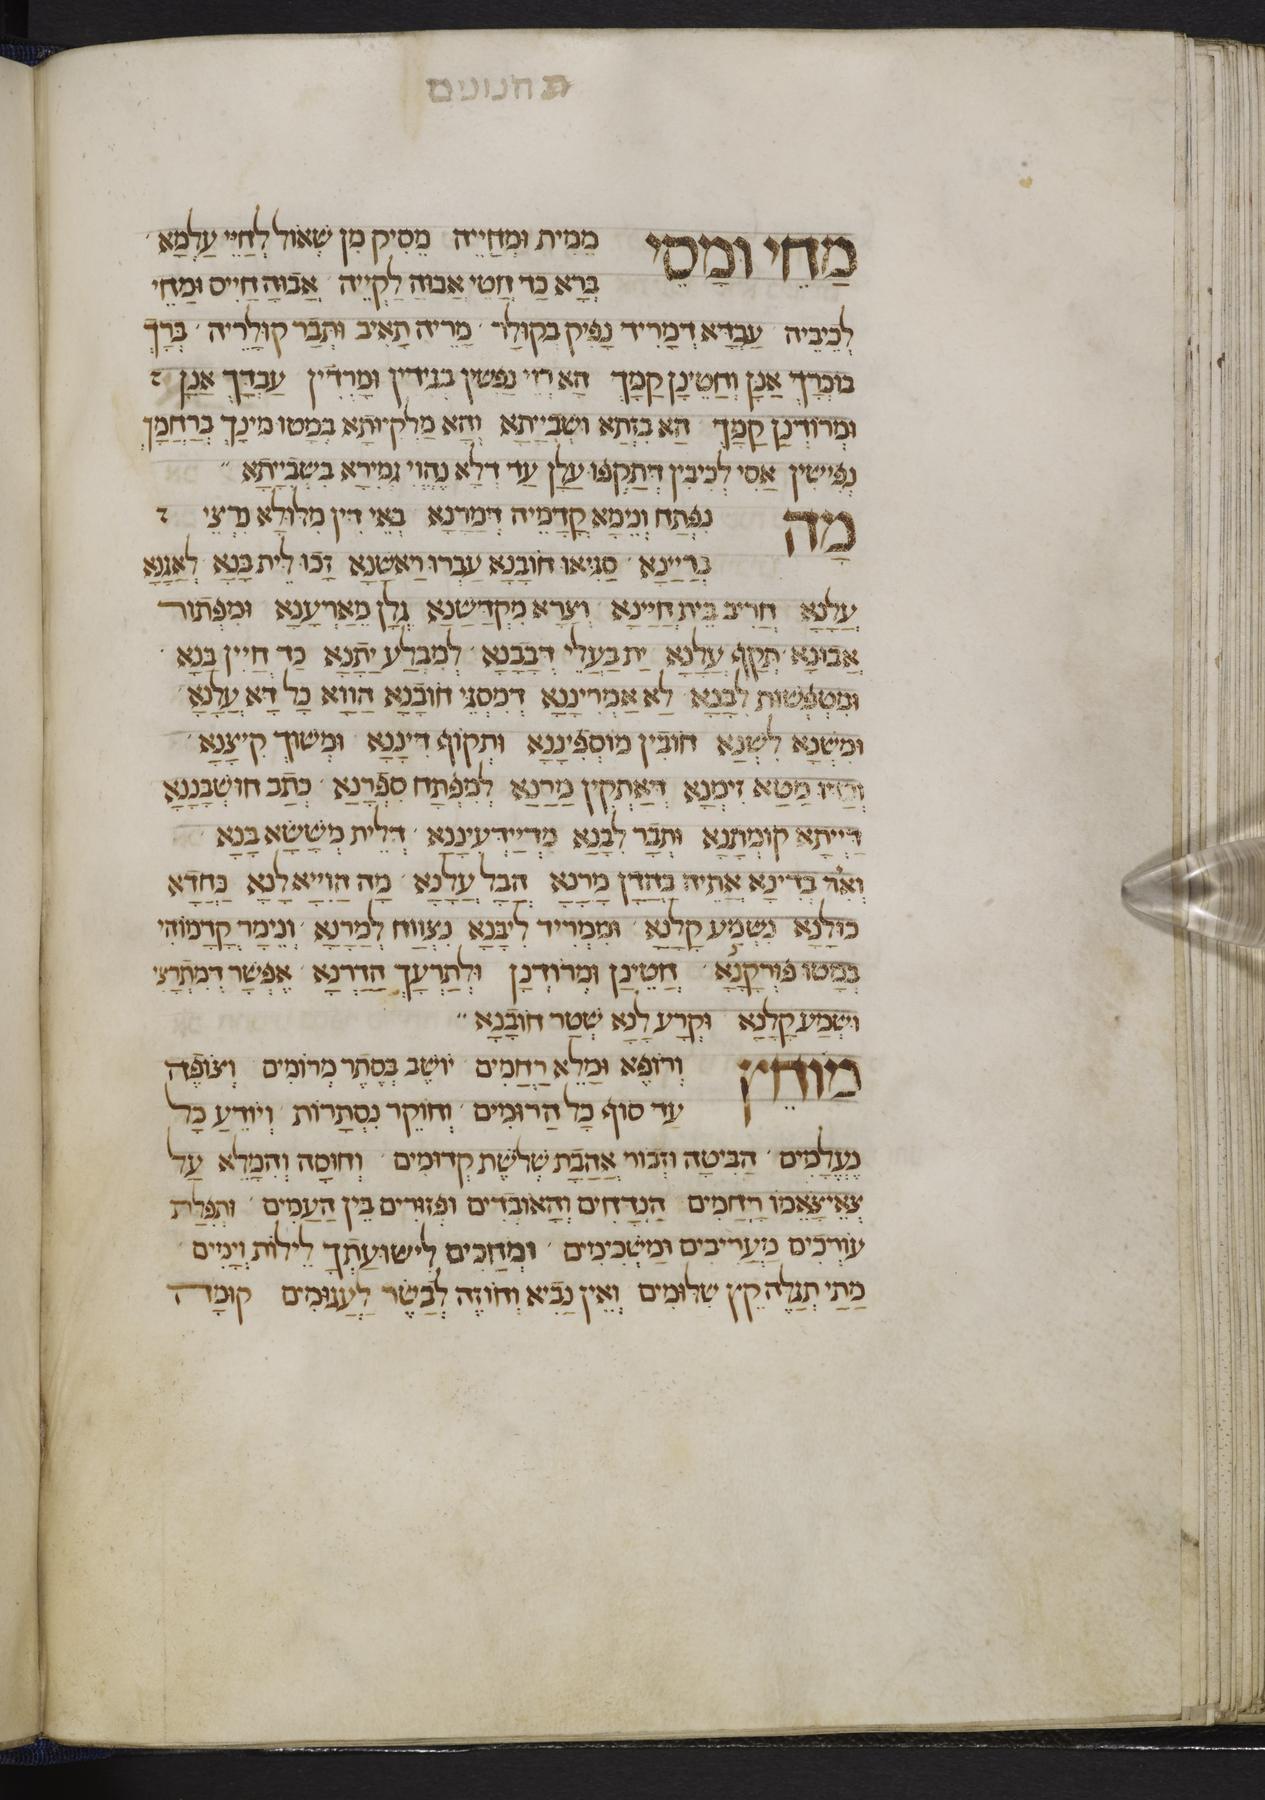 תחנונים
מַחֵי וּמַסֵי מֵמִית וּמְחַיֵיה מַסִיק מִן שְׁאוֹל לְחַיֵי עַלְמָא
בְּרָא כַד חֲטֵי אֲבוּהּ לַקְיֵיהּ אֲבוּהּ חַיִיס וּמַחֵי
לְכֵיבֵיהּ עַבְדָא דְמָרִיד נָפִיק בְּקוֹלַר מָרֵיהּ תָּאִיב וּתְבַר קוֹלָרֵיהּ בְּרָךְ
בּוּכְרָךְ אֲנָן וְחָטֵינָן קַמָךְ הָא רָוֵי נַפְשִׁין בְּגִידִין וּמְרָרִין עַבְדָךְ אֲנָן
וּמְרוֹדְנַן קַמָךְ הָא בִּזְתָא וּשְׁבִייָתָא וְהָא מַלְקִיוּתָא בְּמָטוּ מִינָךְ בְּרַחֲמָךְ
נְפִישִׁין אַסִי לְכֵיבִין דְתַקְפוּ עֲלַן עַד דְלָא נֶהֱוֵי גְמִירָא בְּשִׁבְיָיתָא
מָה נִפְתַּח וְנֵימָא קֳדָמֵיהּ דְמָרָנָא בְּאֵי דֵין מִלּוּלָא נְרַצֵי
גַרְיָינָא סַגִיאוּ חוֹבָנָא עַבְרוּ רֵאשָׁנָא זָכוּ לֵית בָּנָא לְאַגָנָא
עֲלָנָא חֲרִיב בֵּית חַיָינָא וְצָרָא מִקְדְשָׁנָא גְלָן מֵאַרְעָנָא וּמִפְּתוֹר
אֲבוּנָא תְּקֵף עֲלָנָא יַת בַּעֲלֵי דְבָבָנָא לְמִבְלַע יַתָנָא כַּד חַיִין בָּנָא
וּמִטַפְשׁוּת לִבָּנָא לָא אַמְרִינָנָא דְמִסְגֵי חוֹבָנָא הֲוָוא כָל דָא עֲלָנָא
וּמִשְׁנָא לִשְׁנָא חוֹבִין מוֹסְפִינָנָא וּתְקוֹף דִינָנָא וּמְשׁוֹךְ קִיצָנָא
מְטָא זִימְנָא דְאַתְקִין מָרָנָא לְמִפְתַּח סִפְרָנָא כְּתַב חוּשְׁבָּנָנָא
דַיְיתָא קוֹמְתָנָא וּתְבַר לִבָּנָא מִדְיָידְעִינָנָא דְלֵית מְשָׁשָׁא בָּנָא
בְּדִינָא אָתֵיהּ בַּהֲדָן מָרָנָא הֲבָל עֲלָנָא מָה הֲוִיָיא לָנָא כַּחֲדָא
כּוּלָנָא נַשְׁמַע קָלָנָא וּמִמְרִיד לִיבָּנָא נִצְווַח לְמָרָנָא וְנֵימַר קֳדָמוֹהִי
בְּמָטוּ פּוּרְקָנָא חָטֵינַן וּמְרוֹדְנָן וּלְתַרְעָךְ הֲדַרְנָא אֶפְשָׁר דְמִתְרַצֵי
וּשְׁמַע קָלָנָא וּקְרַע לָנָא שְׁטַר חוֹבָנָא
מוֹחֵץ וְרוֹפֵא וּמָלֵא רַחֲמִים יוֹשֵׁב בְּסֵתֶר מְרוֹמִים וְצוֹפֶה
עַד סוֹף כָּל הָרוּמִים וְחוֹקֵר נִסְתָּרוֹת וְיוֹדֵעַ כָּל
נֶעֱלָמִים הַבִּיטָה וּזְכוֹר אַהֲבַת שְׁלֹשֶׁת קְדוּמִים וְחוּסָה וְהִמָּלֵא עַל
צֶאֱצָאֵמוֹ רַחֲמִים הַנִדָּחִים וְהָאוֹבְדִים וּפְזוּרִים בֵּין הָעַמִים וּתְפִלַּת
עוֹרְכִים מַעֲרִיבִים וּמַשְׁכִּימִים וּמְחַכִּים לִישׁוּעָתְךָ לֵילוֹת וְיָמִים
מָתַי תְּגַלֶּה קֵץ שִׁלּוּמִים וְאֵין נָבִיא וְחוֹזֶה לְבַשֵּׂר לַעֲגוּמִים קוּמָה